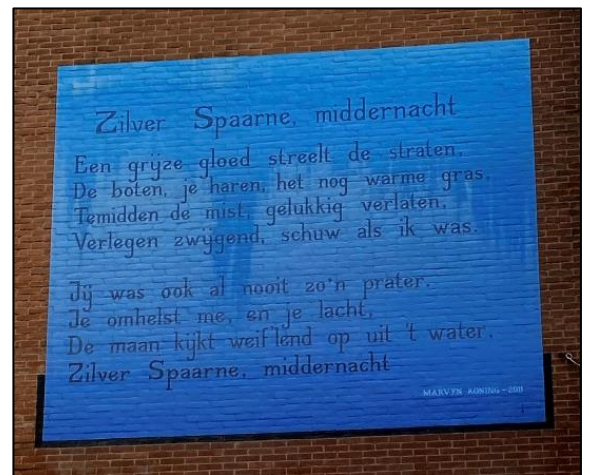 Zilver Spaarne, middernacht
Een grijze gloed streelt de straten,
De boten, je haren, het nog warme gras,
Temidden de mist, gelukkig verlaten,
Verlegen zwijgend, schuw als ik was.
Jij was ook al nooit zo'n prater.
Je omhelst me, en je lacht,
De maan kijkt weif'lend op uit 't water.
Zilver Spaarne, middernacht
MARVEN KONING - 2011